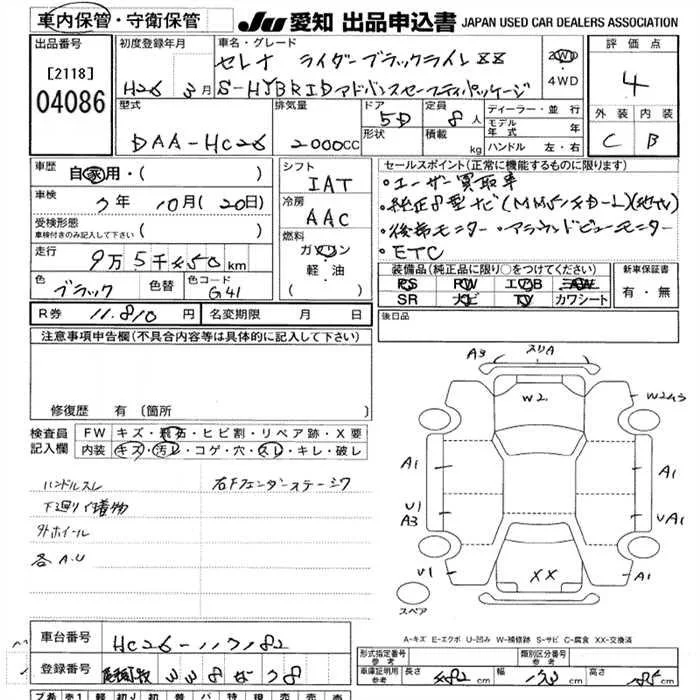 車内保管・守衛保管 JU 愛知 出品申込書 JAPAN USED CAR DEALERS ASSOCIATION
出品番号 初度登録年月 車名・グレード 評価点
[2118] セレナ ライダーブラックライン XX 2WD
04086 H26 3月 S-HYBRID アドバンスセーフティパッケージ 4WD 4
型式 排気量 ドア 定員 ディーラー・並行 外装 内装
DAA-HC26 2000CC 5D 8人 モデル年式 年 C B
形状 積載 kg ハンドル 左・右
車歴 自家用・( ) シフト セールスポイント(正常に機能するものに限ります)
車検 7年 10月(20日) IAT ・ユーザー買取車
受検形態 冷房 ・純正8型ナビ
車検付きのみ記入して下さい ( ) AAC ・後席モニター ・アラウンドビューモニター
走行 9万5千 50 km 燃料 ・ETC
ガソリン 装備品(純正品に限り○をつけてください) 新車保証書
色 ブラック 色替 色コード G41 軽・油 PS PW エアB AW 有・無
( ) SR ナビ TV カワシート
R券 11.810円 名変期限 月 日 後日品
注意事項申告欄(不具合内容等は具体的に記入して下さい)
A3 スリA
W2 W2
修復歴 有 [箇所 ]
検査員 FW キズ・飛石・ヒビ割・リペア跡・X要
記入欄 内装 キズ・汚レ・コゲ・穴・スレ・キレ・破レ
A1 A1
ハンドルスレ 右Fフェンダーステージワ
下廻リ サビ
外ホイール U1 A3 UA1
各A.U
U1 XX A1
スペア
A-キズ E-エクボ U-凹み W-補修跡 S-サビ C-腐食 XX-交換済
車台番号 HC26-117182
形式指定番号 参考 類別区分番号 参考
登録番号
車庫証明用 参考 長さ cm 幅 cm 高さ cm